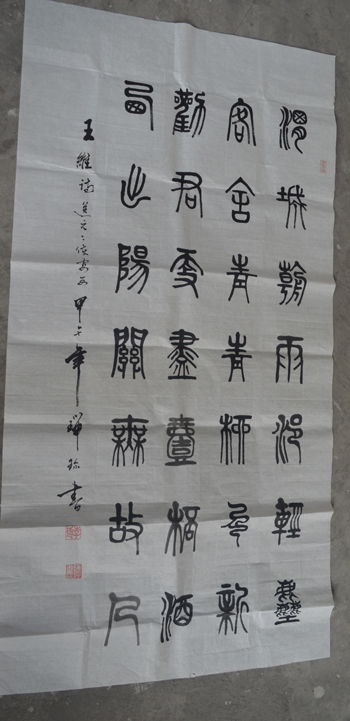 渭城朝雨浥輕塵
客舍青青柳色新
勸君更盡一杯酒
西出陽關無故人
王維詩送元二使安西甲午年
書